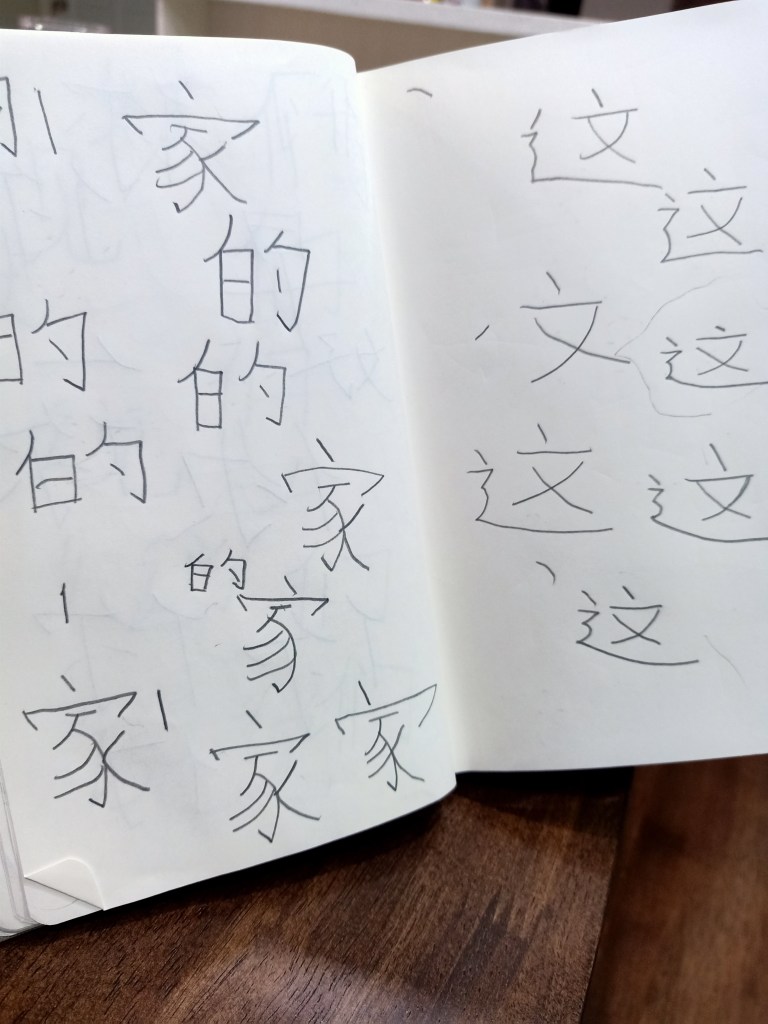 家
的
的
的
的
家
的
家
家
家
家
这
这
文
这
这
这
这